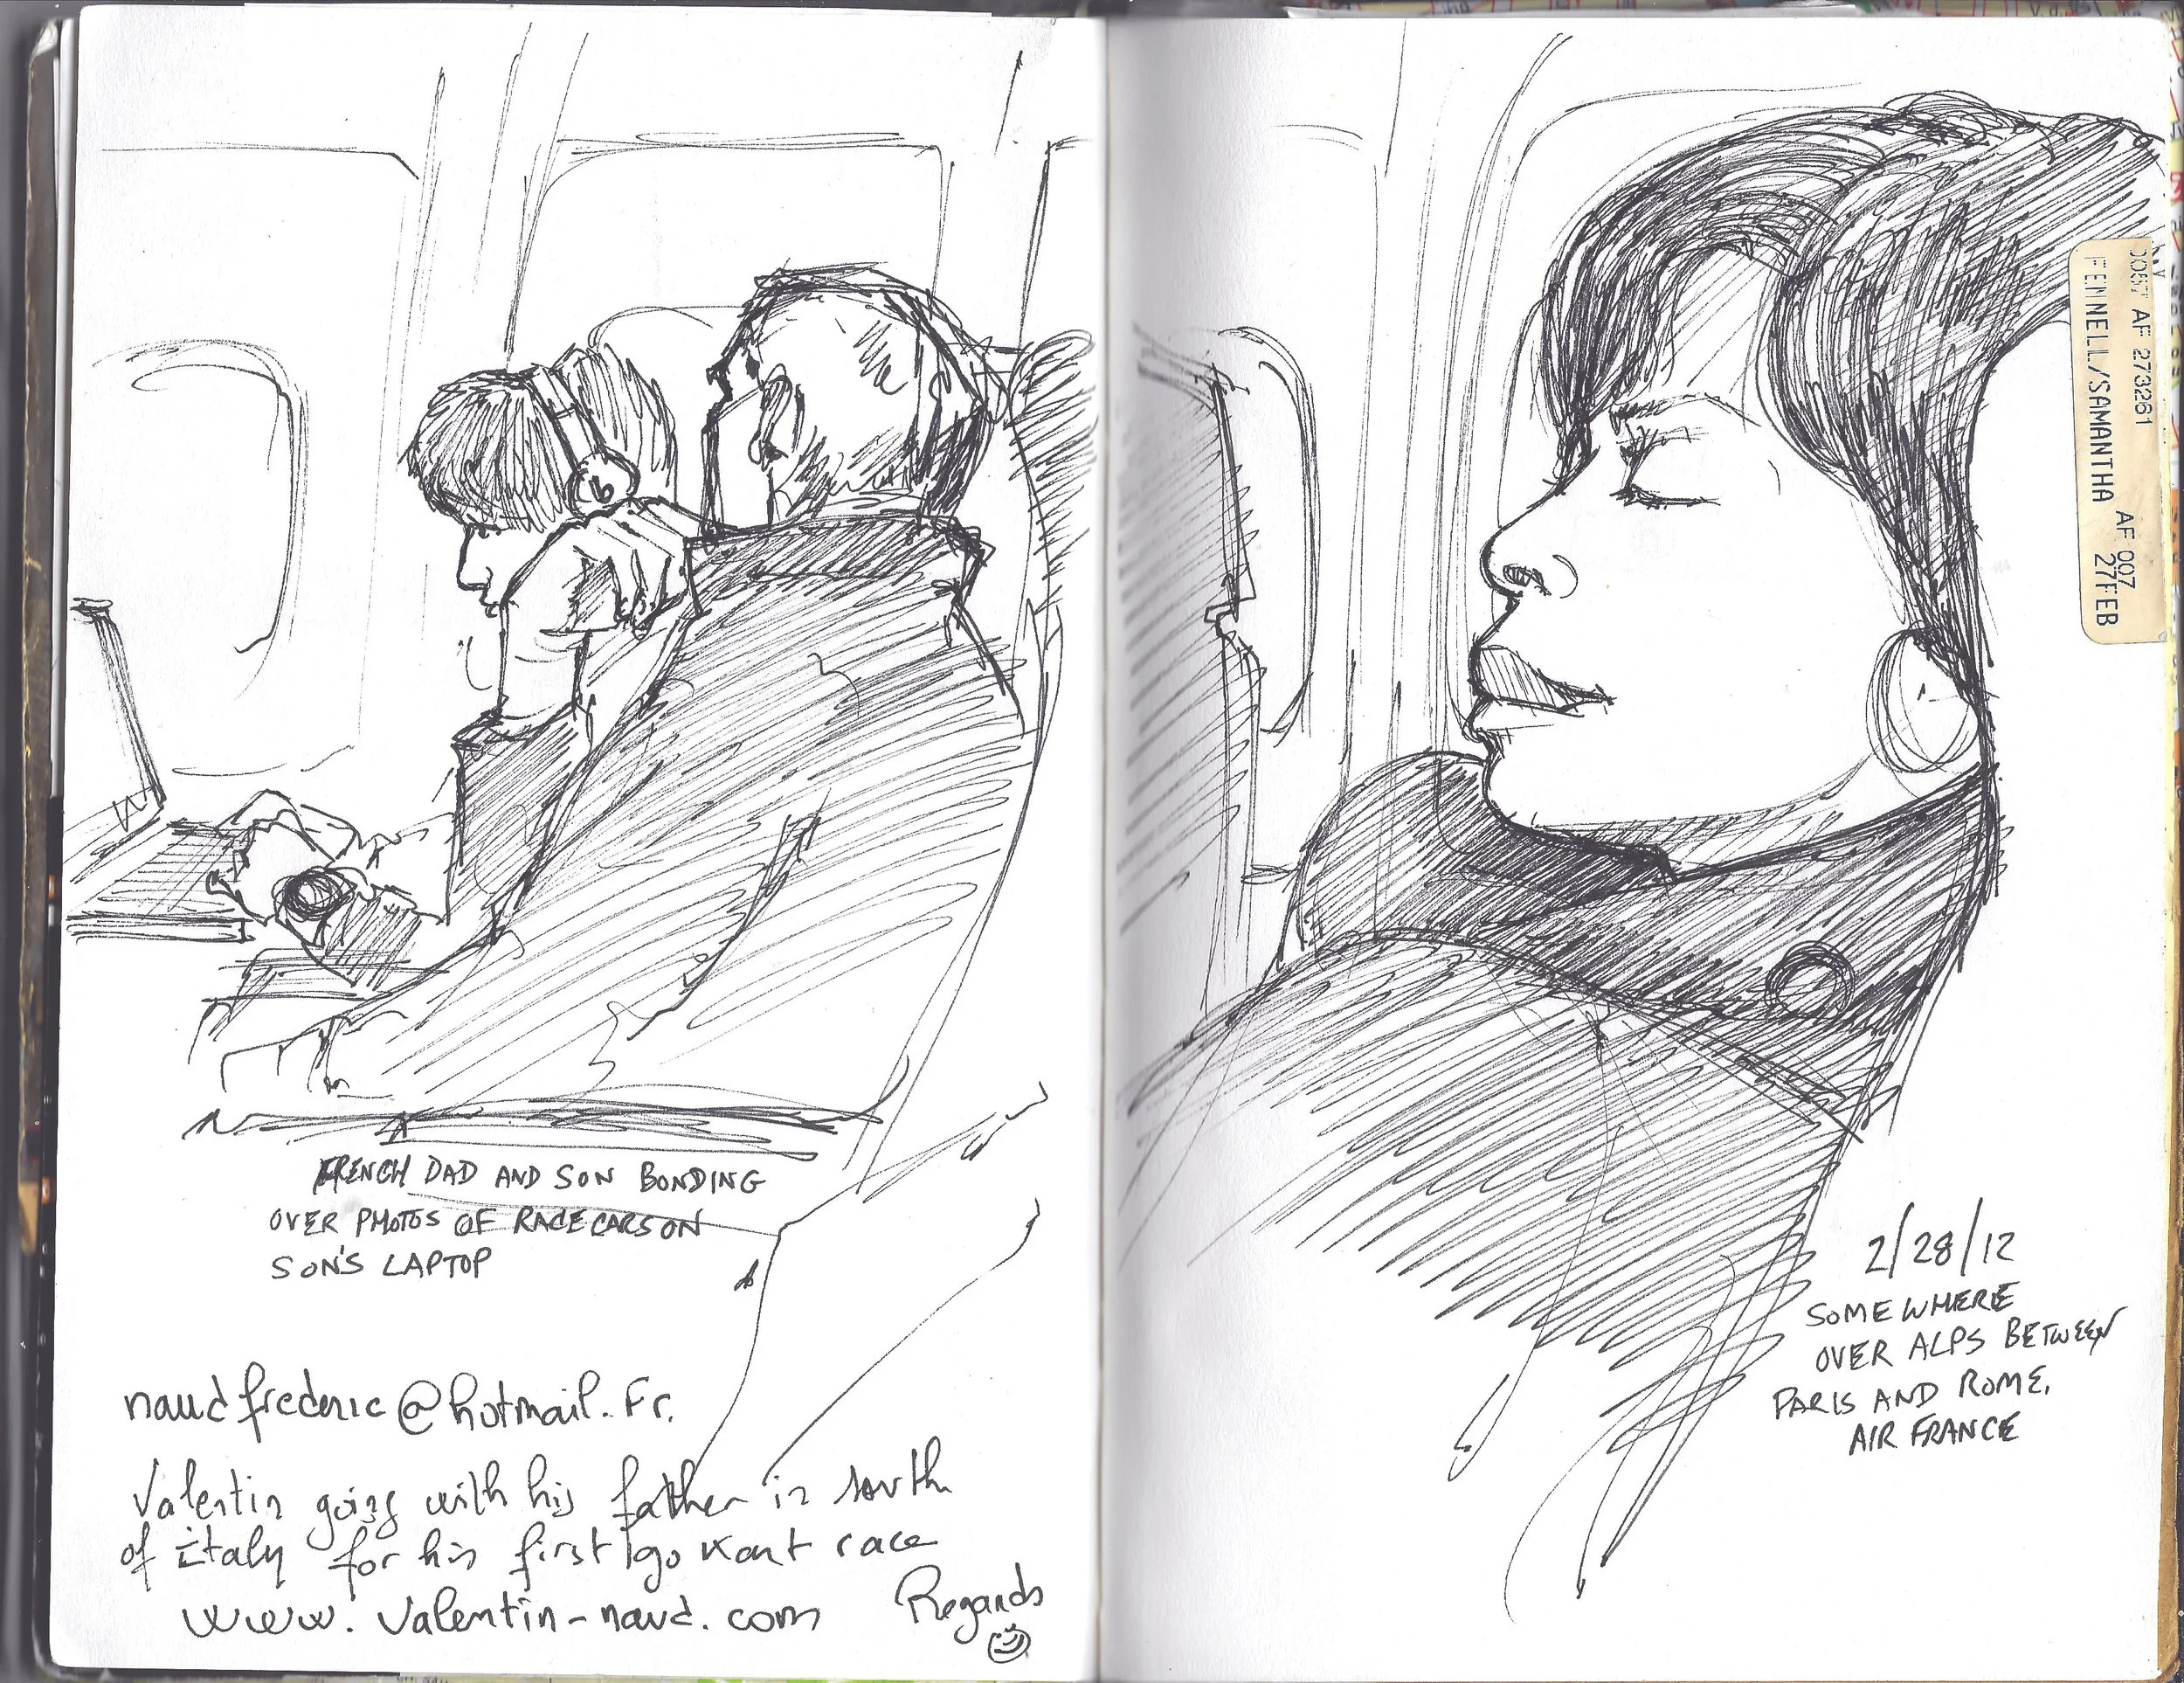 FRENCH DAD AND SON BONDING
OVER PHOTOS OF RACECARS ON
SON'S LAPTOP
naudfrederic@hotmail.Fr.
Valentin going with his father in south
of Italy for his first go kart race
www.valentin-naud.com
Regards
b
0057 AF 273261
FENNELL/SAMANTHA
AF 007
27FEB
2/28/12
SOMEWHERE
OVER ALPS BETWEEN
PARIS AND ROME,
AIR FRANCE